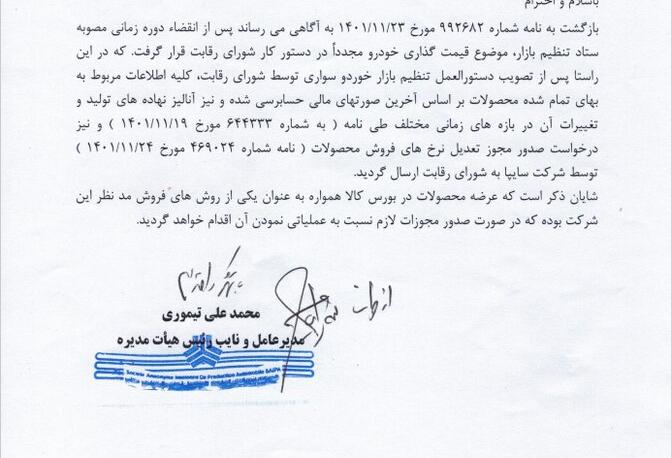 باسلام و احترام
بازگشت به نامه شماره ۹۹۲۶۸۲ مورخ ۱۴۰۱/۱۱/۲۳ به آگاهی می رساند پس از انقضاء دوره زمانی مصوبه
ستاد تنظیم بازار، موضوع قیمت گذاری خودرو مجدداً در دستور کار شورای رقابت قرار گرفت. که در این
راستا پس از تصویب دستورالعمل تنظیم بازار خوردو سواری توسط شورای رقابت، کلیه اطلاعات مربوط به
بهای تمام شده محصولات بر اساس آخرین صورتهای مالی حسابرسی شده و نیز آنالیز نهاده های تولید و
تغییرات آن در بازه های زمانی مختلف طی نامه ( به شماره ۶۴۴۳۳۳ مورخ ۱۴۰۱/۱۱/۱۹ ) و نیز
درخواست صدور مجوز تعدیل نرخ های فروش محصولات ( نامه شماره ۴۶۹۰۲۴ مورخ ۱۴۰۱/۱۱/۲۴ )
توسط شرکت سایپا به شورای رقابت ارسال گردید.
شایان ذکر است که عرضه محصولات در بورس کالا همواره به عنوان یکی از روش های فروش مد نظر این
شرکت بوده که در صورت صدور مجوزات لازم نسبت به عملیاتی نمودن آن اقدام خواهد گردید.
محمد علی تیموری
مدیرعامل و نایب رئیس هیأت مدیره
Societe Anonyme Iranienne De Production Automobile SAIPA